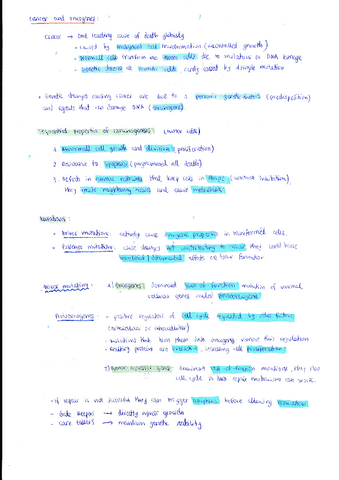 cancer and oncogenes:
cancer → one leading cause of death globally
• caused by malignant cell transformation (uncontrolled growth)
• normal cells transform into tumor cells due to mutations or DNA damage
• genetic disease of somatic cells rarely caused by a single mutation
• Genetic changes causing cancer are due to a person's genetic factors (predisposition)
and agents that can damage DNA (carcinogens)
Essential properties of (tumor cells)
1. Abnormal cell growth and division (proliferation)
2. Resistance to apoptosis (programmed cell death)
3. Defects in that keep cells in place (contact inhibition),
they invade neighboring tissues and cause metastasis
Mutations:
• Driver mutations: actively cause properties in transformed cells.
• Passenger mutations: cause changes not contributing to cancer, they could have
beneficial / detrimental effects on tumor formation
Driver mutations: 1) Oncogenes: dominant gain of function mutation of normal
cellular genes called protooncogenes
Protooncogenes: - positive regulators of cell cycle regulated by other factors
(intracellular or extracellular)
- mutations that turn them into oncogenes remove this regulation
- resulting proteins are increasing cell proliferation
2) Tumor supressor genes: loss of function mutations, they
cell cycle so that repair mechanisms can work.
- if repair is not successful they can trigger apoptosis before allowing
- Gate keepers → directly repress growth
- care takers → maintain genetic stability